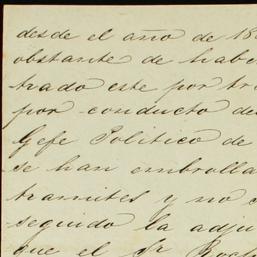 desde el año de 18
obstante de habe
trado este por tr
por conducto de
Gefe Politico de
se han embrolla
tramites y no
seguido la adju
que el Sr Roch